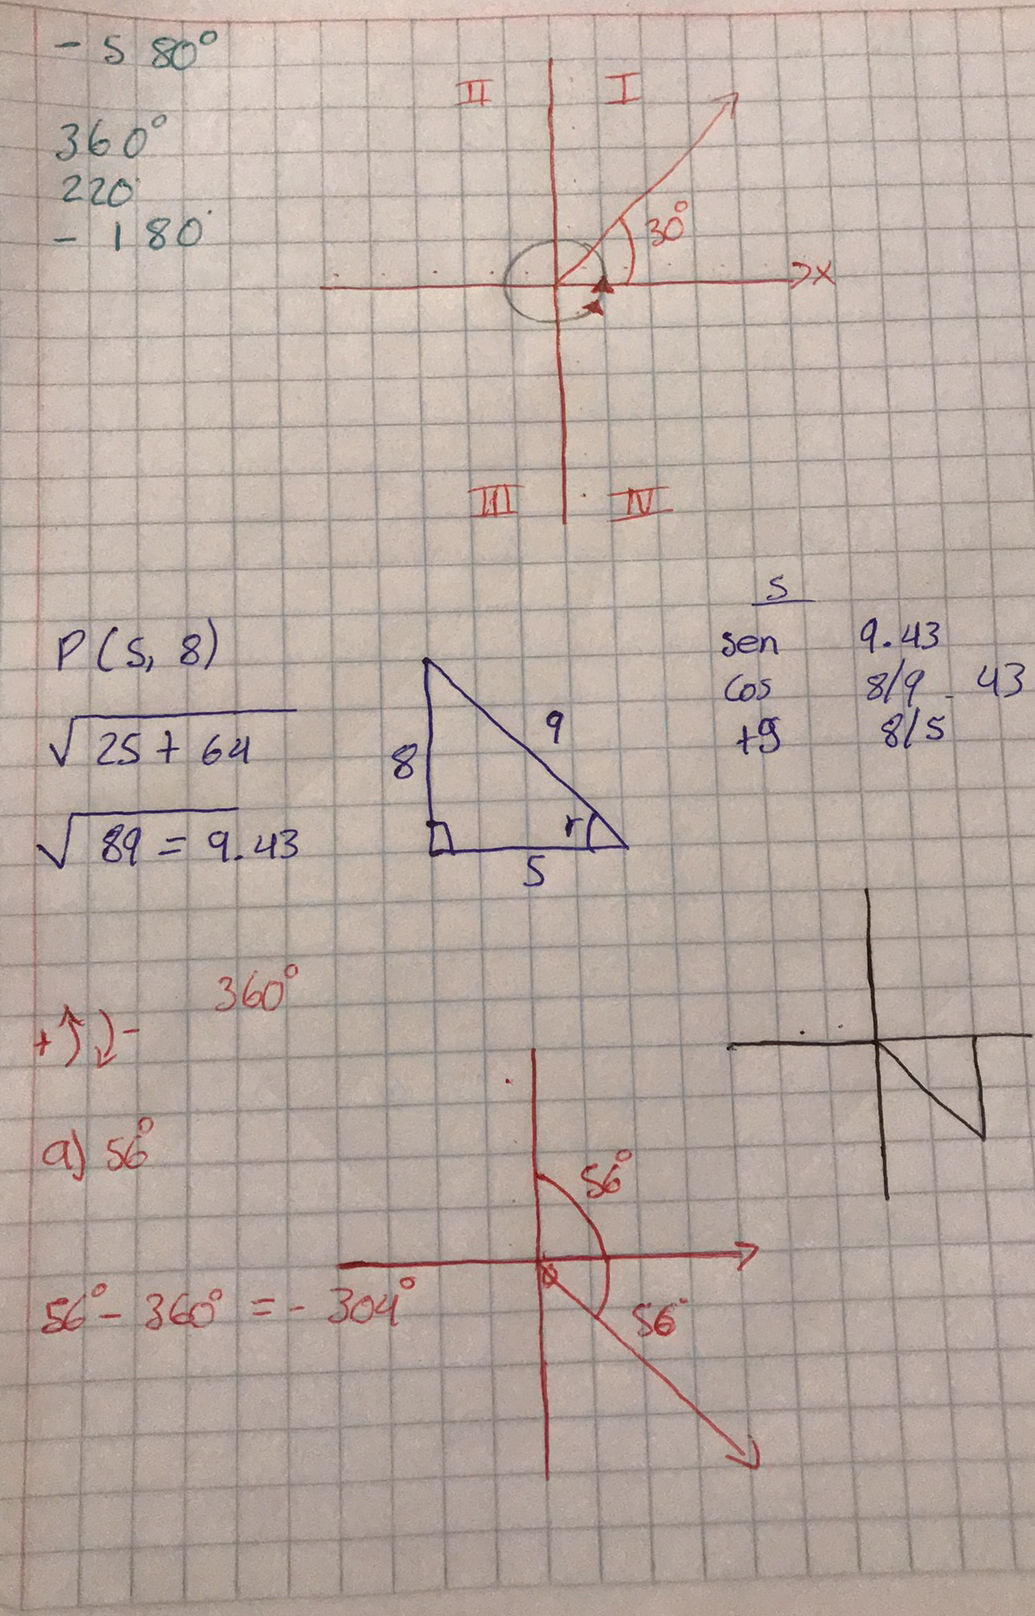 - 5 80°
360°
220
- 180
II I
30°
x
III IV
P(5, 8)
√25 + 64
√89 = 9.43
8
9
r
5
5
sen 9.43
cos 8/9 . 43
tg 8/5
360°
+ -
a) 56°
56°
56° - 360° = - 304°
56°